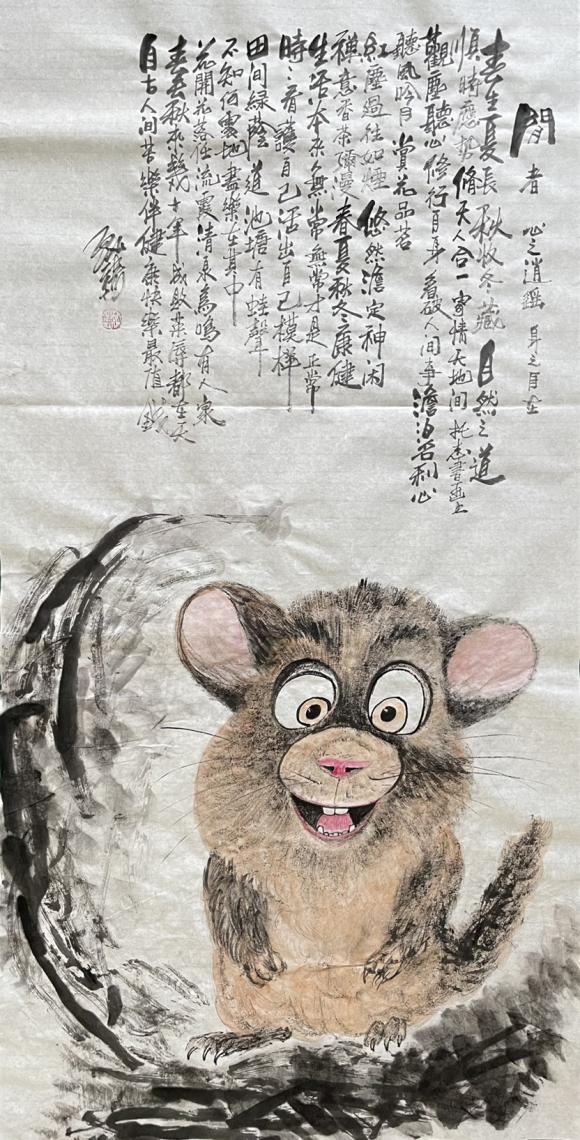 閒者 心之逍遙 身之自在
春生夏長 秋收冬藏 自然之道
順時應勢 脩天人合一 寄情天地間 托志書畫上
觀塵聽心 修行自身 看破人間事 澹泊名利心
聽風吟月 賞花品茗
紅塵過往如煙 悠然澹定神闲
禪意香茶瀰漫 春夏秋冬康健
生活本來多無常 無常才是正常
時時看護自己 活出自己模樣
田间綠蔭道 池塘有蛙聲
不知何處地 盡樂在其中
花開花落任流霞 清泉鳥鳴有人家
春去秋來幾十年 成敗榮辱都在天
自古人间苦樂伴 健康快樂最值錢